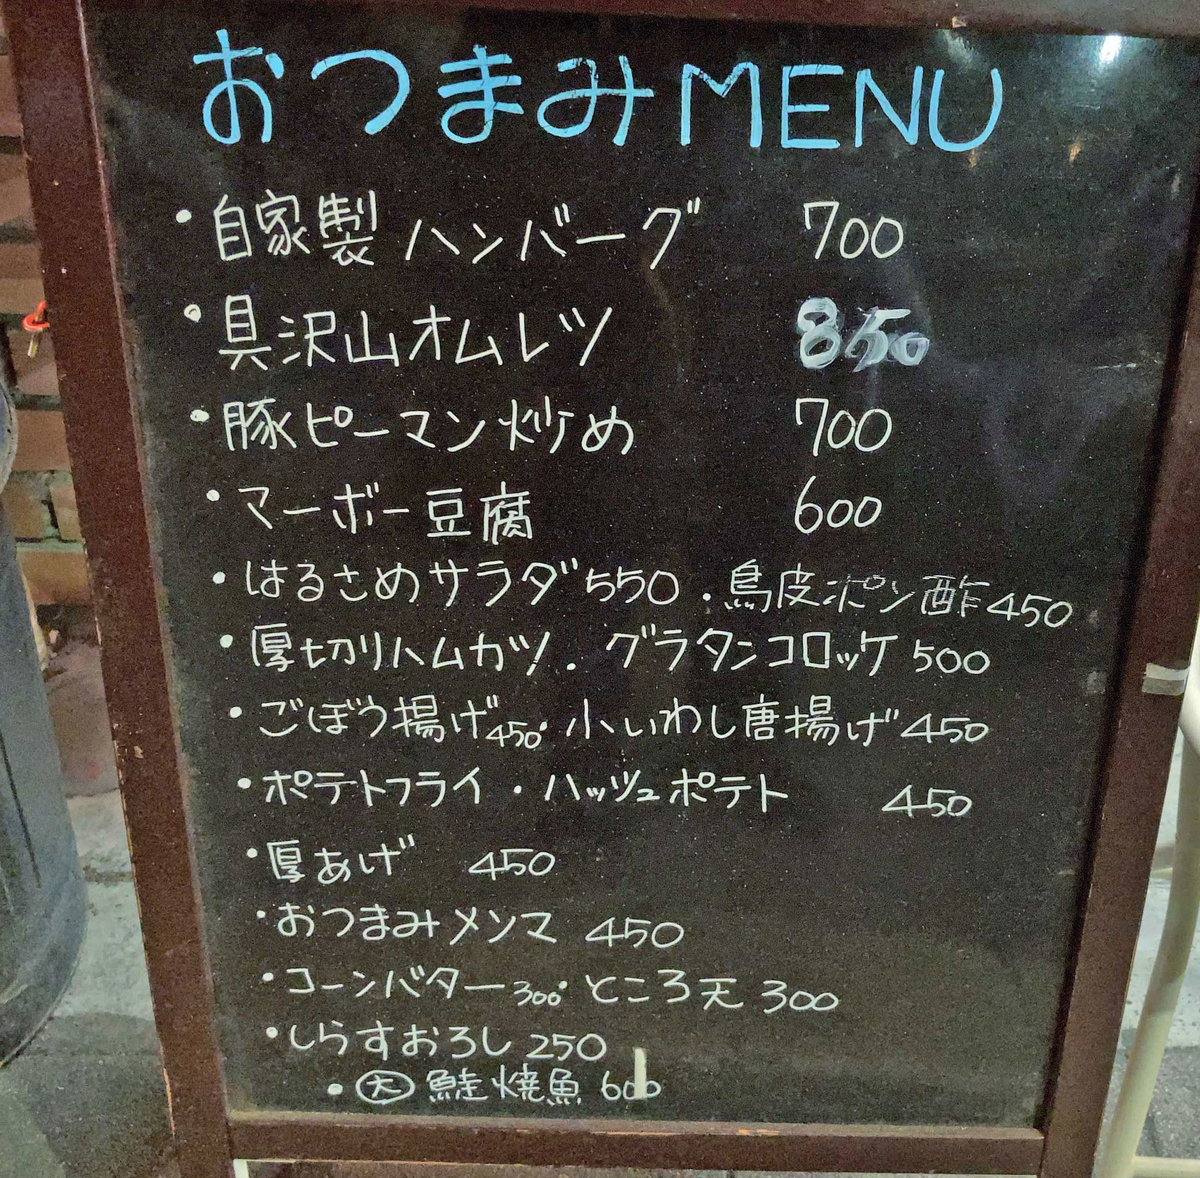 おつまみMENU
・自家製ハンバーグ 700
・具沢山オムレツ 850
・豚ピーマン炒め 700
・マーボー豆腐 600
・はるさめサラダ550 ・鳥皮ポン酢450
・厚切りハムカツ・グラタンコロッケ 500
・ごぼう揚げ450・小いわし唐揚げ450
・ポテトフライ・ハッシュポテト 450
・厚あげ 450
・おつまみメンマ 450
・コーンバター300・ところ天 300
・しらすおろし 250
・大 鮭焼魚 600